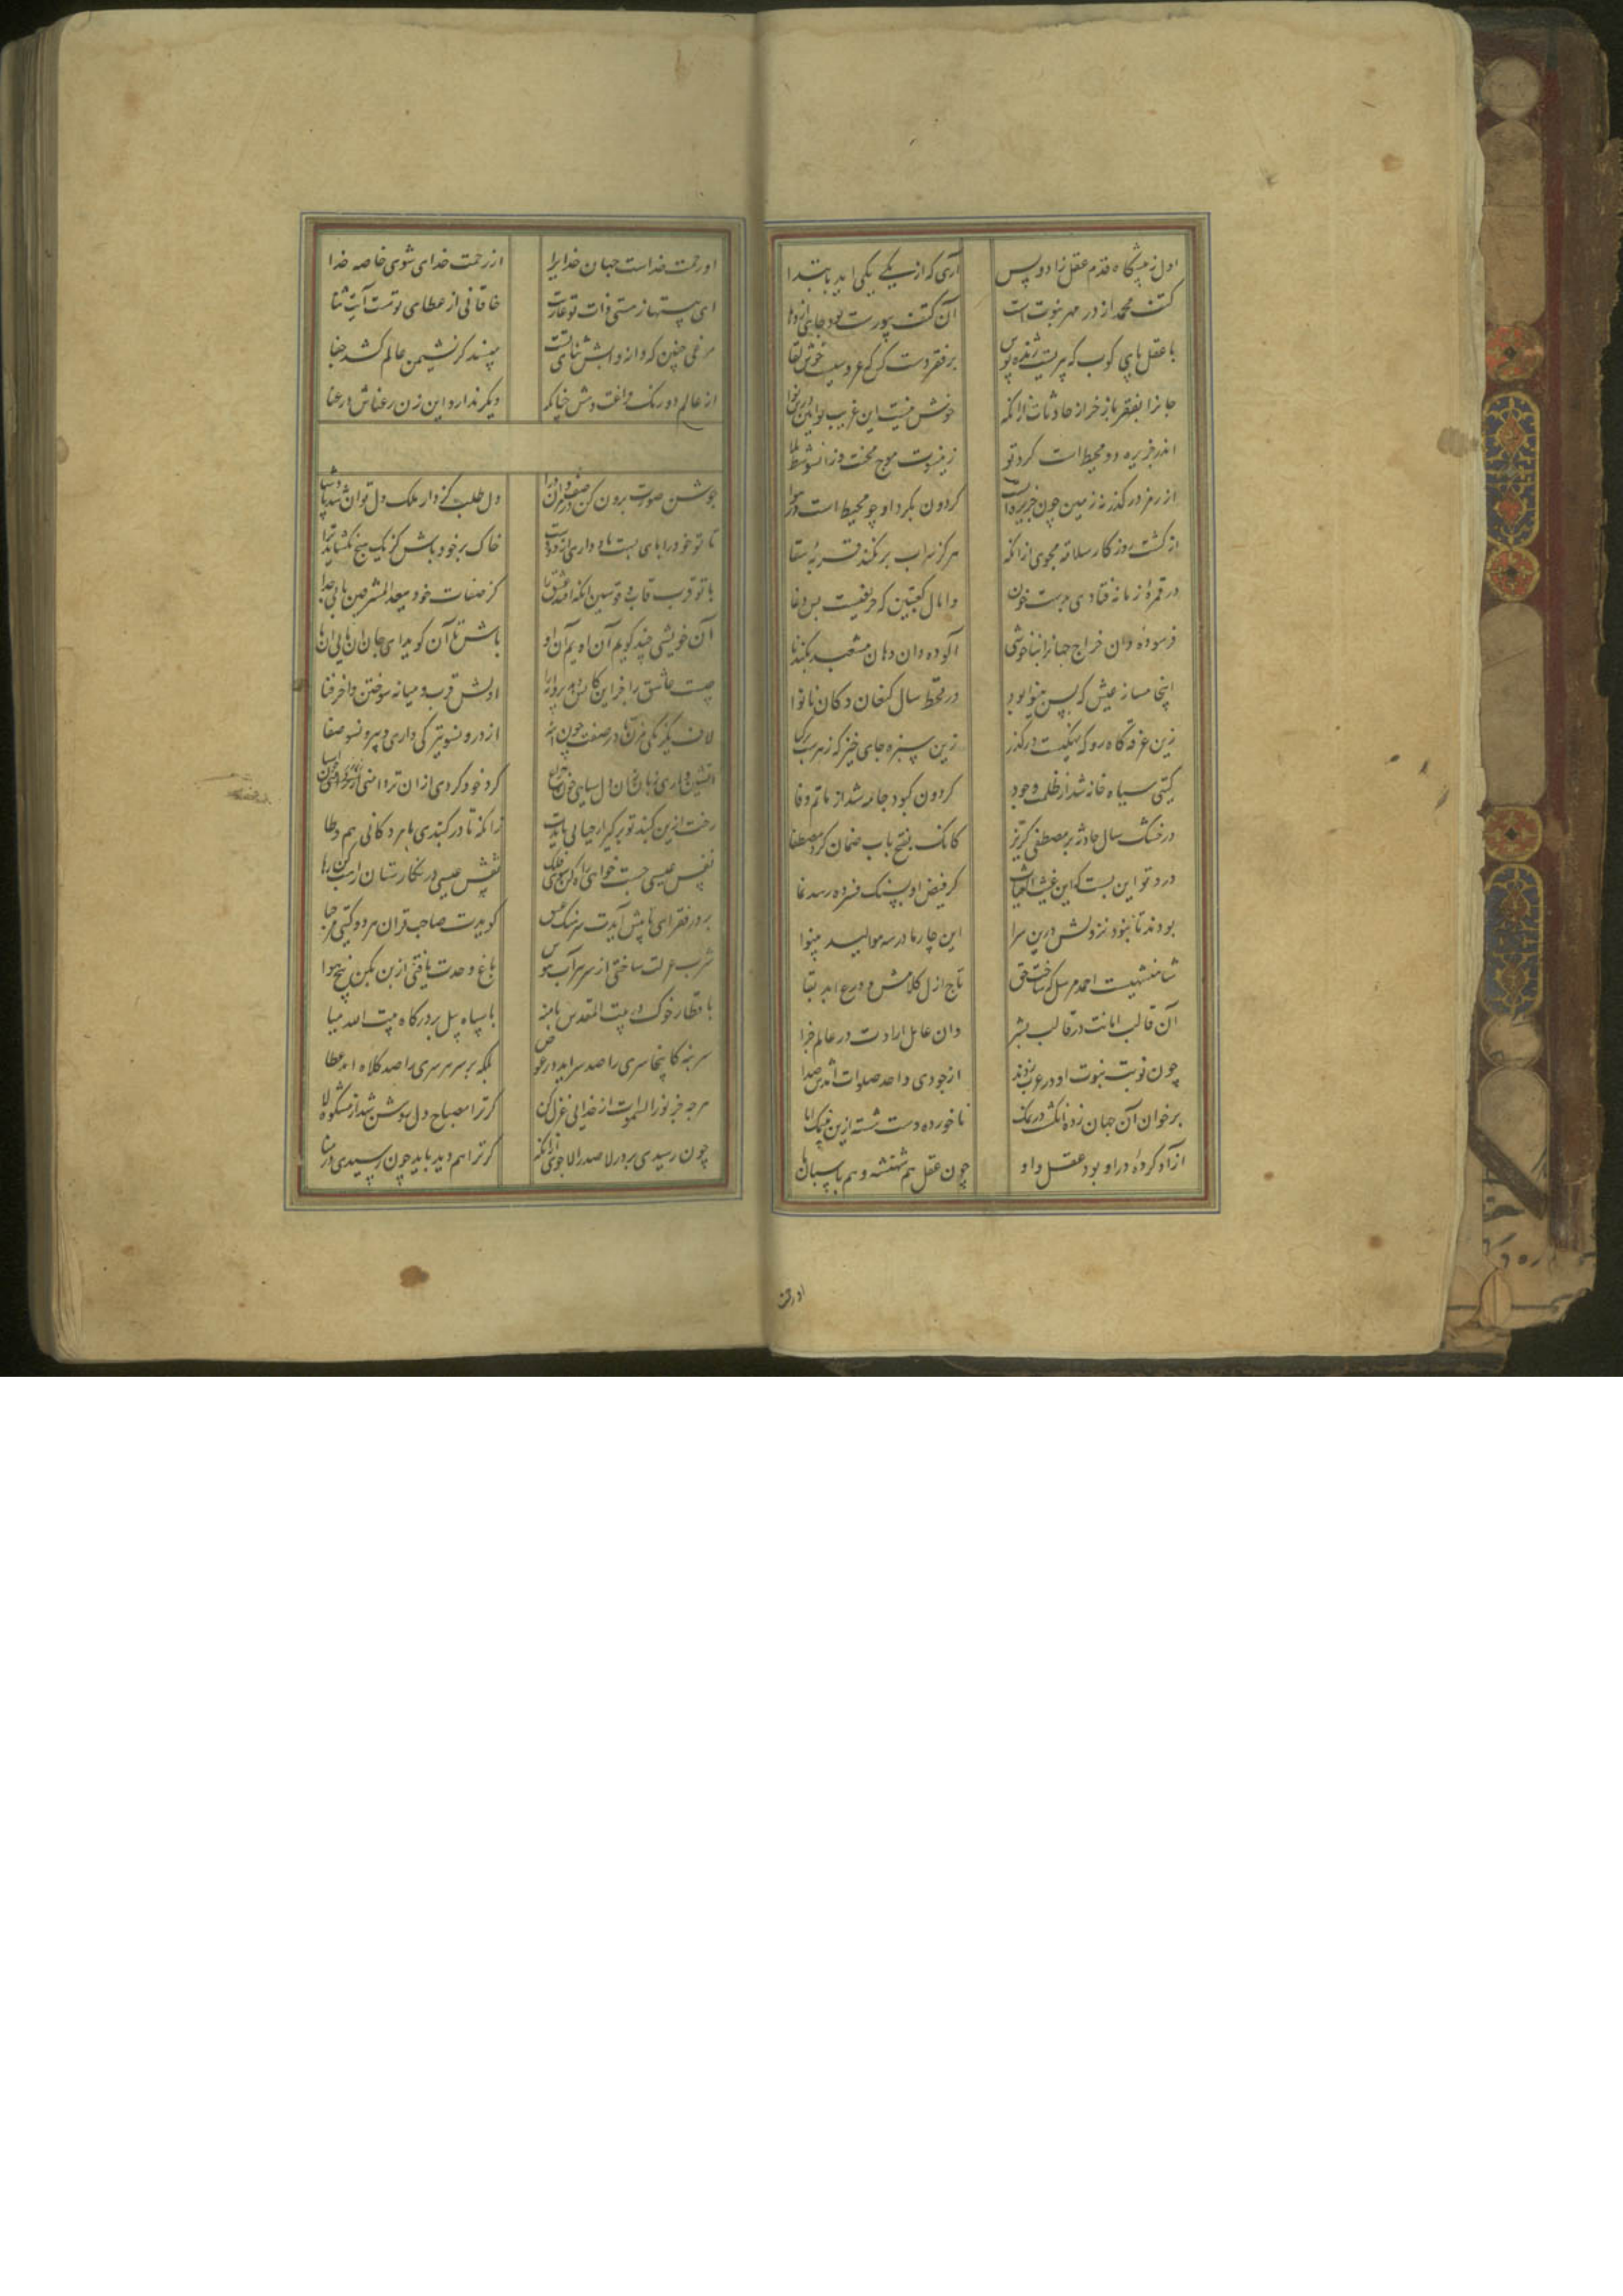 اول ز پیشگاه قدم عقل زاد و بس آری که از یکی یکی اید بابتدا
کتف محمد از در مهر نبوت است آن کتف بیوراست بود جای اژدها
با عقل پای کوب که پیریست ژنده پوش بر فقر دست کش که عروسیست خوش لقا
جانرا بفقر باز خر از حادثات ازانکه خوش نیست این غریب نوایین درین نوا
اندر جزیره و محیط است کرد تو زینسوت موج محنت و زانسو شط بلا
از رمز درکذر که زمین چون جزیره ایست کردون بکرد او چو محیط است در هوا
از کشت روزکار سلامت مجوی ازانکه هرکز سراب بر نکند قربهٔ سقا
در قمرهٔ زمانه فتادی بدست خون وامال کعبتین که حریفیست بس دغا
فرسوده دان خراج جهانرا بناخوشی آلوده دان دهان مشعبد بکندنا
اینجا مساز عیش که بس بینوا بود در قحط سال کنعان دکان نانوا
زین غرقه کاه رو که نهنکیست درکذر زین سبزه جای خیز که زهریست
کیتی سیاه خانه شد از ظلمت وجود کردون کبود جامه شد از ماتم وفا
در خشک سال حادثه بر مصطفی کریز کانک بفتح باب ضمان کرد مصطفا
درد تو این بست که این غیث الغیاث کز فیض او بسنک فسرده رسد نما
بودند تا نبود نزولش درین سرا این چار مادر سه موالید بینوا
شاهنشهیست احمد مرسل که ساخت حق تاج ازل کلاهش و درع ابد بقا
آن قالب امانت در قالب بشر وان عامل ارادت در عالم جزا
چون نوبت نبوت او در عرب زدند از جودی و احد صلوات امدش صدا
بر خوان آن جهان زده انکشت در نمک ناخورده دست شسته ازین بی نمک ابا
ازاد کردهٔ در او بود عقل و او چون عقل هم شهنشه و هم پاسبان ما
او رحمت
او رحمت خداست جهان خدایرا از رحمت خدای شوی خاصه خدا
ای هستها ز هستی ذات تو عاریت خاقانی از عطای تو هست آیت ثنا
مرغی چنین که دانه و ابش ثنای تست مپسند کز نشیمن عالم کشد جفا
از عالم دو رنک فراغت دهش چنانکه دیکر ندارد این زن رعناش در عنا
جوشن صورت برون کن در صف مردان درا دل طلب کز دار ملک دل توان شد پادشا
تا تو خود را پای بستی باد داری در دو دست خاک بر خود پاش کز خود هیچ نکشاید ترا
با تو قرب قاب قوسین انکه افتد عشق را کز صفات خود ببعد المشرقین مانی جدا
آن خویشی چند کویی آن اویم آن او باش تا آن کو بدای جان آن مایی آن ما
چیست عاشق را جز این کاتش دهد پروانه را اولش قرب و میانه سوختن واخر فنا
لاف یکرنکی مزن تا در صفت چون اینه از درونسو تیرکی داری و بیرونسو صفا
اتشین داری زبان زان دل سیاهی چون چراغ کرد خود کردی ازان تردامنی چون آسیا
رخت ازین کنبد تو برکیر ار حیاتی بایدت زانکه تا در کنبدی با مردکانی هم وطا
نفس عیسی جست خواهی راه کن سوی فلک نقش عیسی در نکارستان راهب کن رها
بر در فقر ای تا پیش آیدت سرهنک عشق کویدت صاحب قران هر دو کیتی مرحبا
شرب عزلت ساختی از سر ببر آب هوس باغ وحدت یافتی از بن بکن بیخ هوا
با قطار خوک در بیت المقدس پا منه با سپاه پیل بر درکاه بیت الله میا
سر بنه کاینجا سری را صد سر اید در عوض بلکه بر سر هر سری را صد کلاه اید عطا
هرچه جز نور السموات از خدایی عزل کن کر ترا مصباح دل روشن شد از مشکوة لا
چون رسیدی بر در لا صدر الا جوی ازانکه کر ترا هم دید باید چون رسیدی در منا